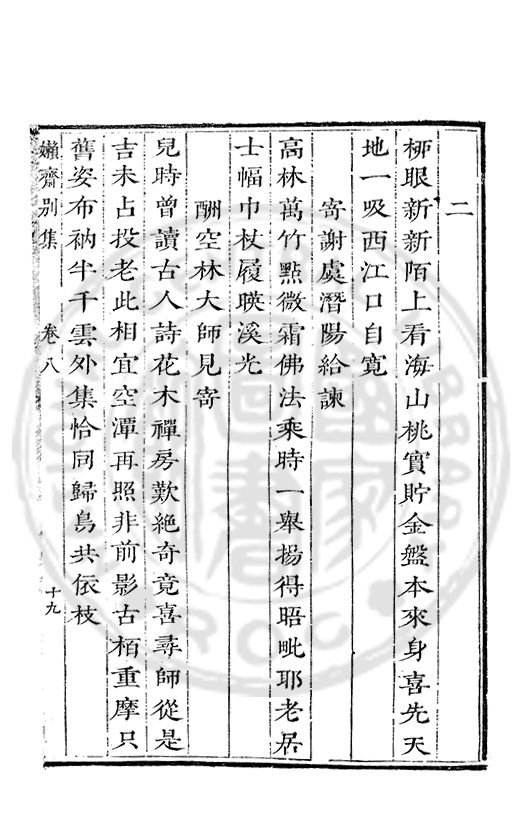 二
柳眼新新陌上看海山桃實貯金盤本來身喜先天
地一吸西江口自寬
寄謝虞潛陽給諫
高林萬竹點微霜佛法乘時一舉揚得晤毗耶老居
士幅巾杖履暎溪光
酬空林大師見寄
兒時曾讀古人詩花木禪房歎絕奇竟喜尋師從是
吉未占投老此相宜空潭再照非前影古栢重摩只
舊姿布衲半千雲外集恰同歸鳥共依枝
嬾齋別集 卷八 十九